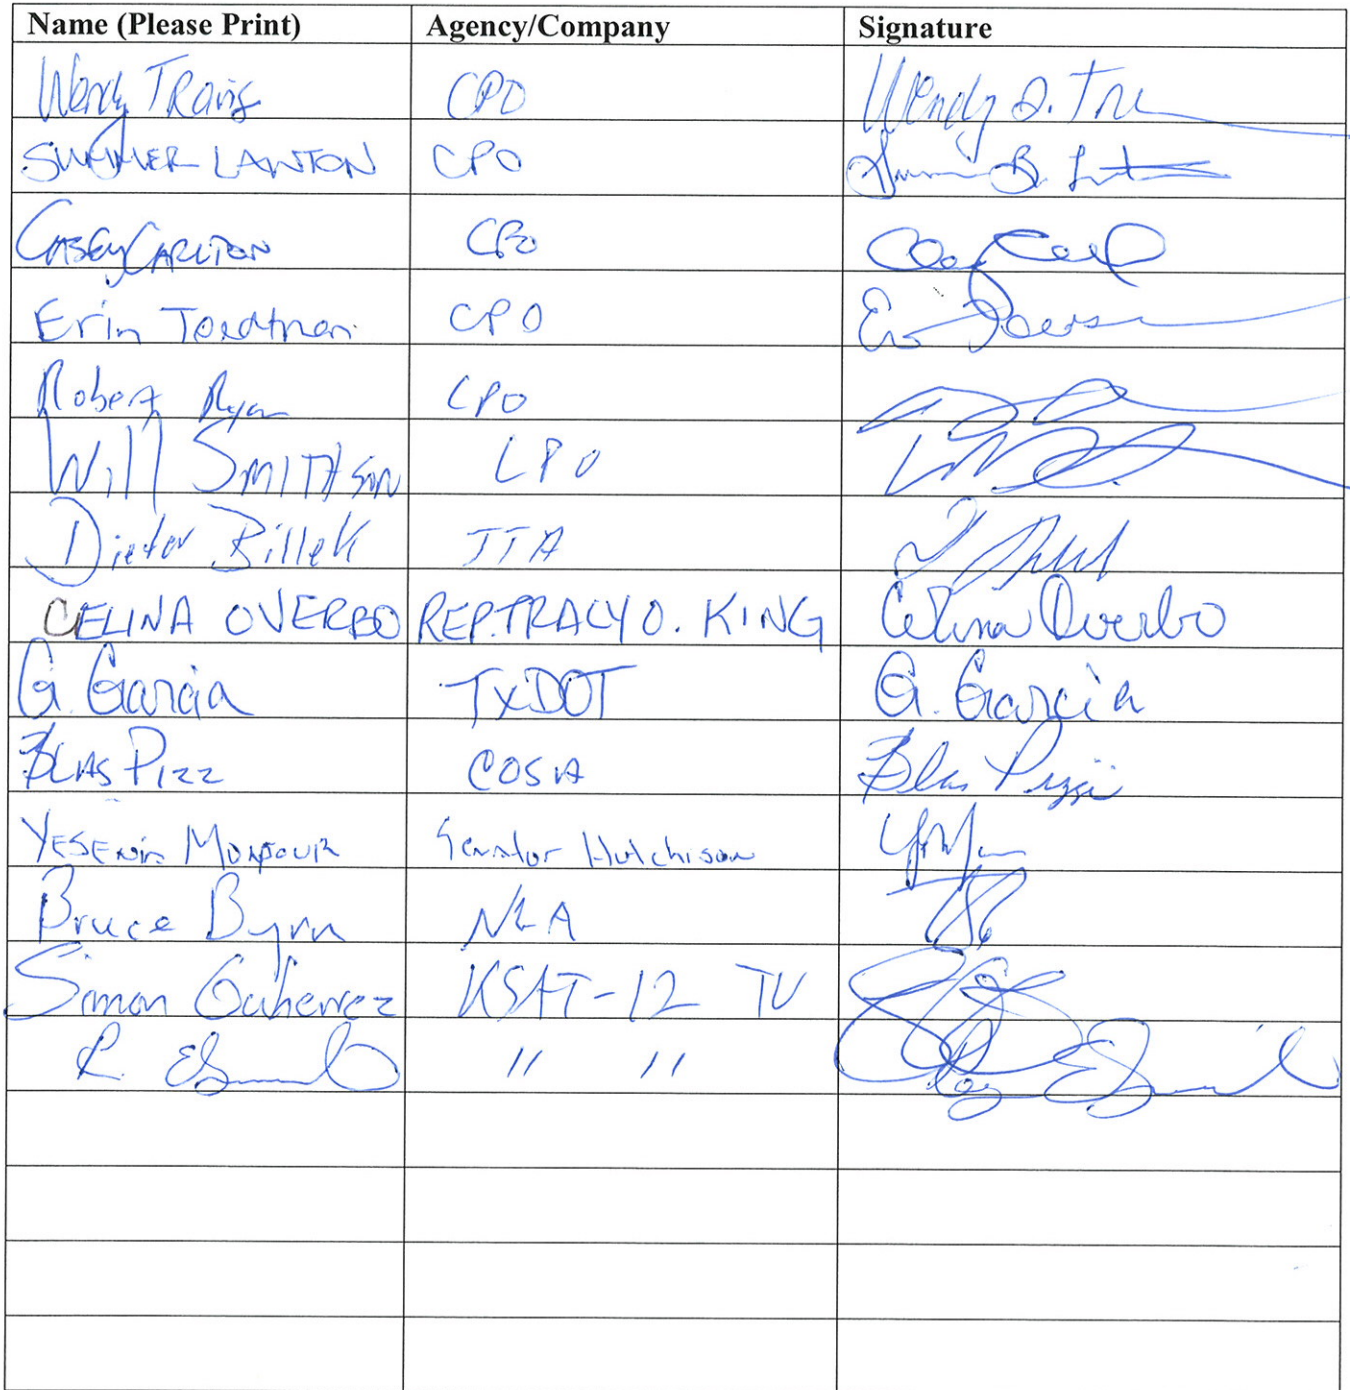 Name (Please Print) Agency/Company Signature
Wendy TRavis CPO Wendy D. Tra
SUMMER LAWTON CPO
CASEY CARLTON CPO
Erin CPO Erin
Robert Ryan CPO
Will SMITHSON CPO
Dieter Billek TTA
CELINA OVERBO REP. TRACY O. KING Celina Overbo
G. Garcia TxDOT G. Garcia
BLAS PIZZ COSA Blas Pizzi
YESENIA Senator Hutchison
Bruce Byrn
Simon Gutierrez KSAT-12 TV
R. " "